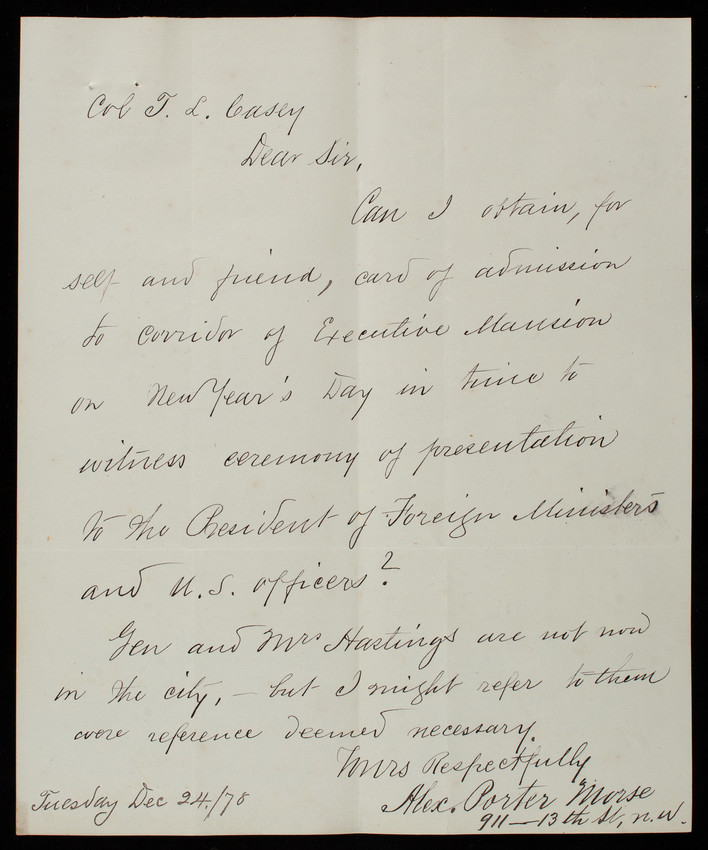 Col T. L. Casey
Dear Sir,
Can I obtain, for
self and friend, card of admission
to corridor of Executive Mansion
on New Year's Day in time to
witness ceremony of presentation
to the President of Foreign Ministers
and U.S. officers?
Gen and Mrs Hastings are not now
in the city, – but I might refer to them
were reference deemed necessary.
Yours Respectfully
Alex. Porter Morse
911 – 13th St, N.W.
Tuesday Dec 24/78